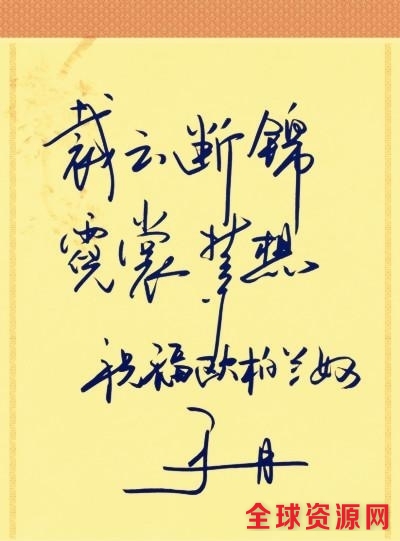 裁云断锦
霓裳梦想
祝福欧柏兰奴
于丹
全球资源网